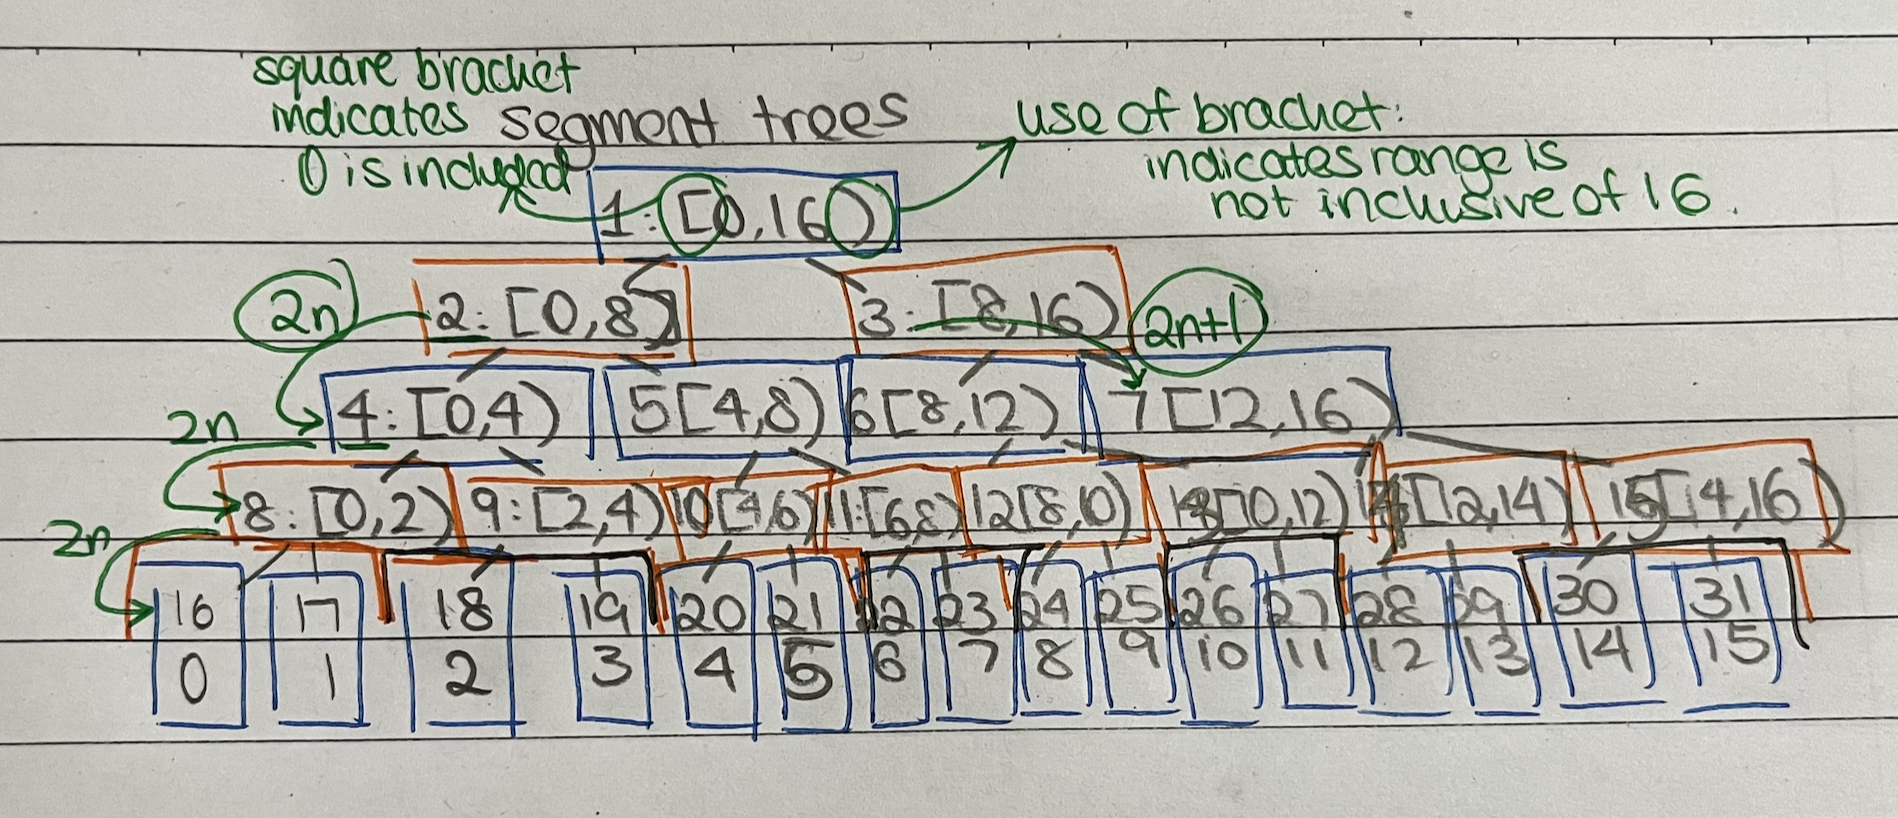 square bracket
indicates segment trees
0 is included
use of bracket:
indicates range is
not inclusive of 16.
1: [0,16)
2n 2: [0,8) 3: [8,16) 2n+1
2n 4: [0,4) 5[4,8) 6[8,12) 7[12,16)
2n 8: [0,2) 9: [2,4) 10[4,6) 11:[6,8) 12[8,10) 13[10,12) 14[12,14) 15[14,16)
16 17 18 19 20 21 22 23 24 25 26 27 28 29 30 31
0 1 2 3 4 5 6 7 8 9 10 11 12 13 14 15